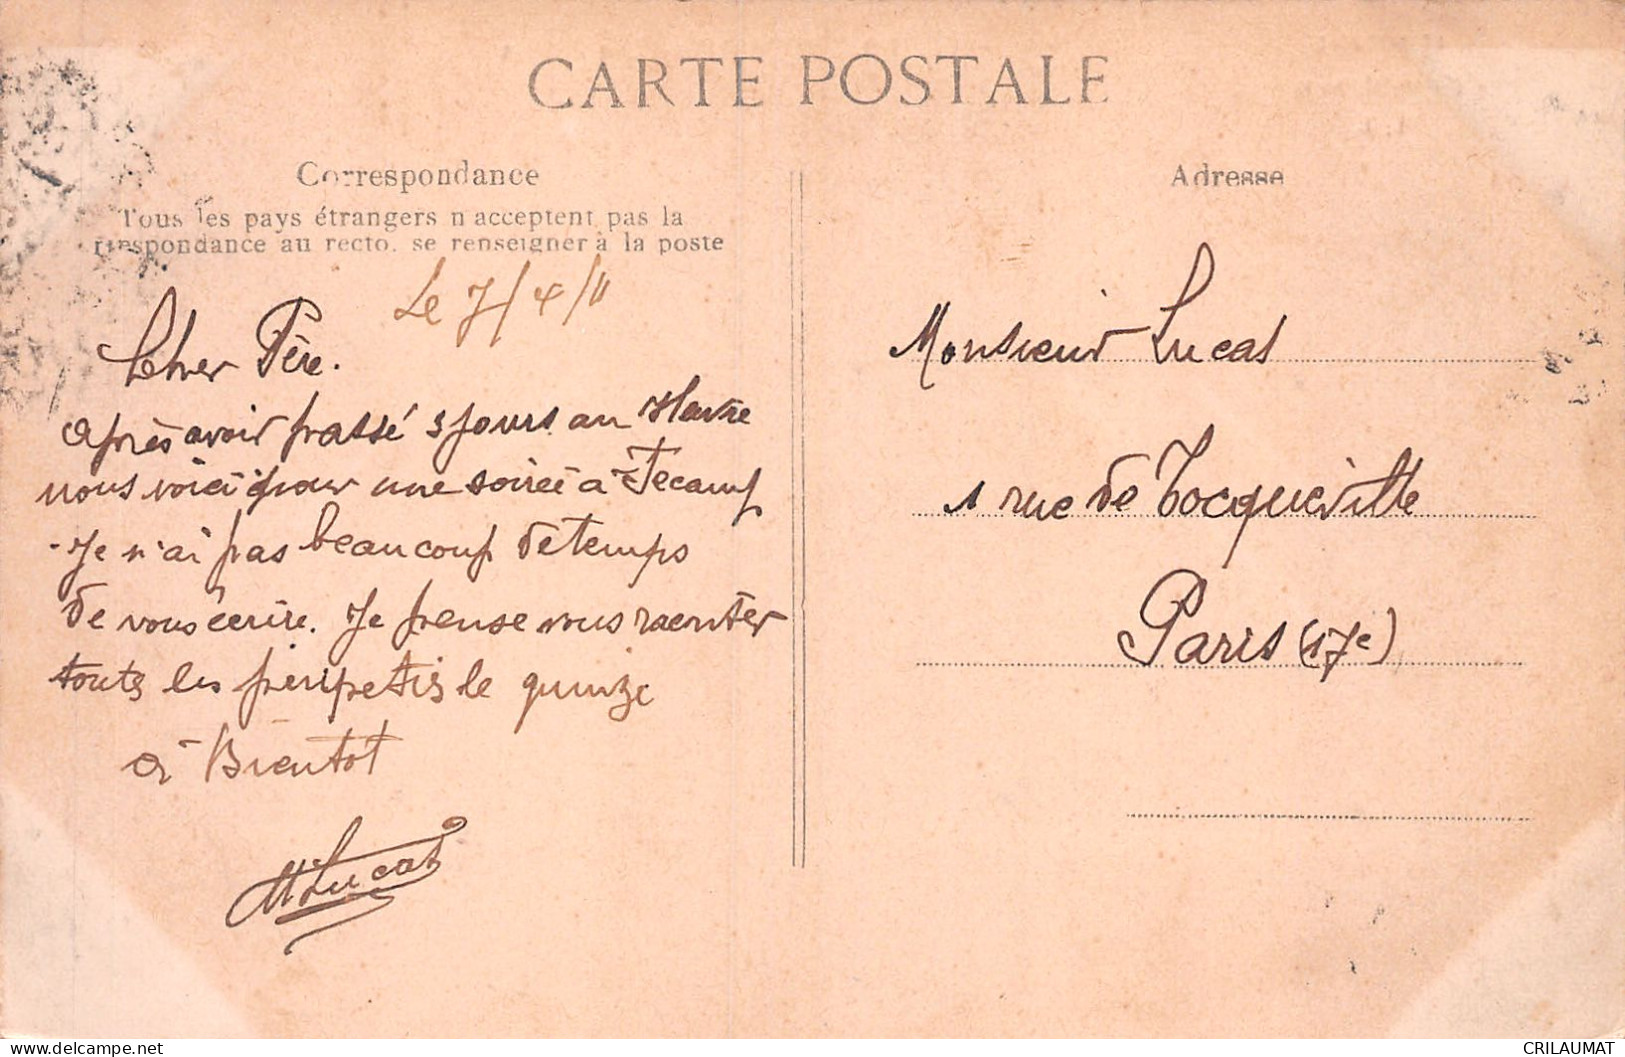 CARTE POSTALE
Correspondance
Tous les pays étrangers n'acceptent pas la
respondance au recto, se renseigner à la poste
Le 7/4/11
Cher Père.
après avoir passé 3 jours au Havre
nous voici pour une soirée à Fecamp
- Je n'ai pas beaucoup de temps
de vous écrire. Je pense vous raconter
toutes les péripeties le quinze
à Bientot
M Lucas
Adresse
Monsieur Lucas
1 rue de Tocqueville
Paris (17e)
CRILAUMAT